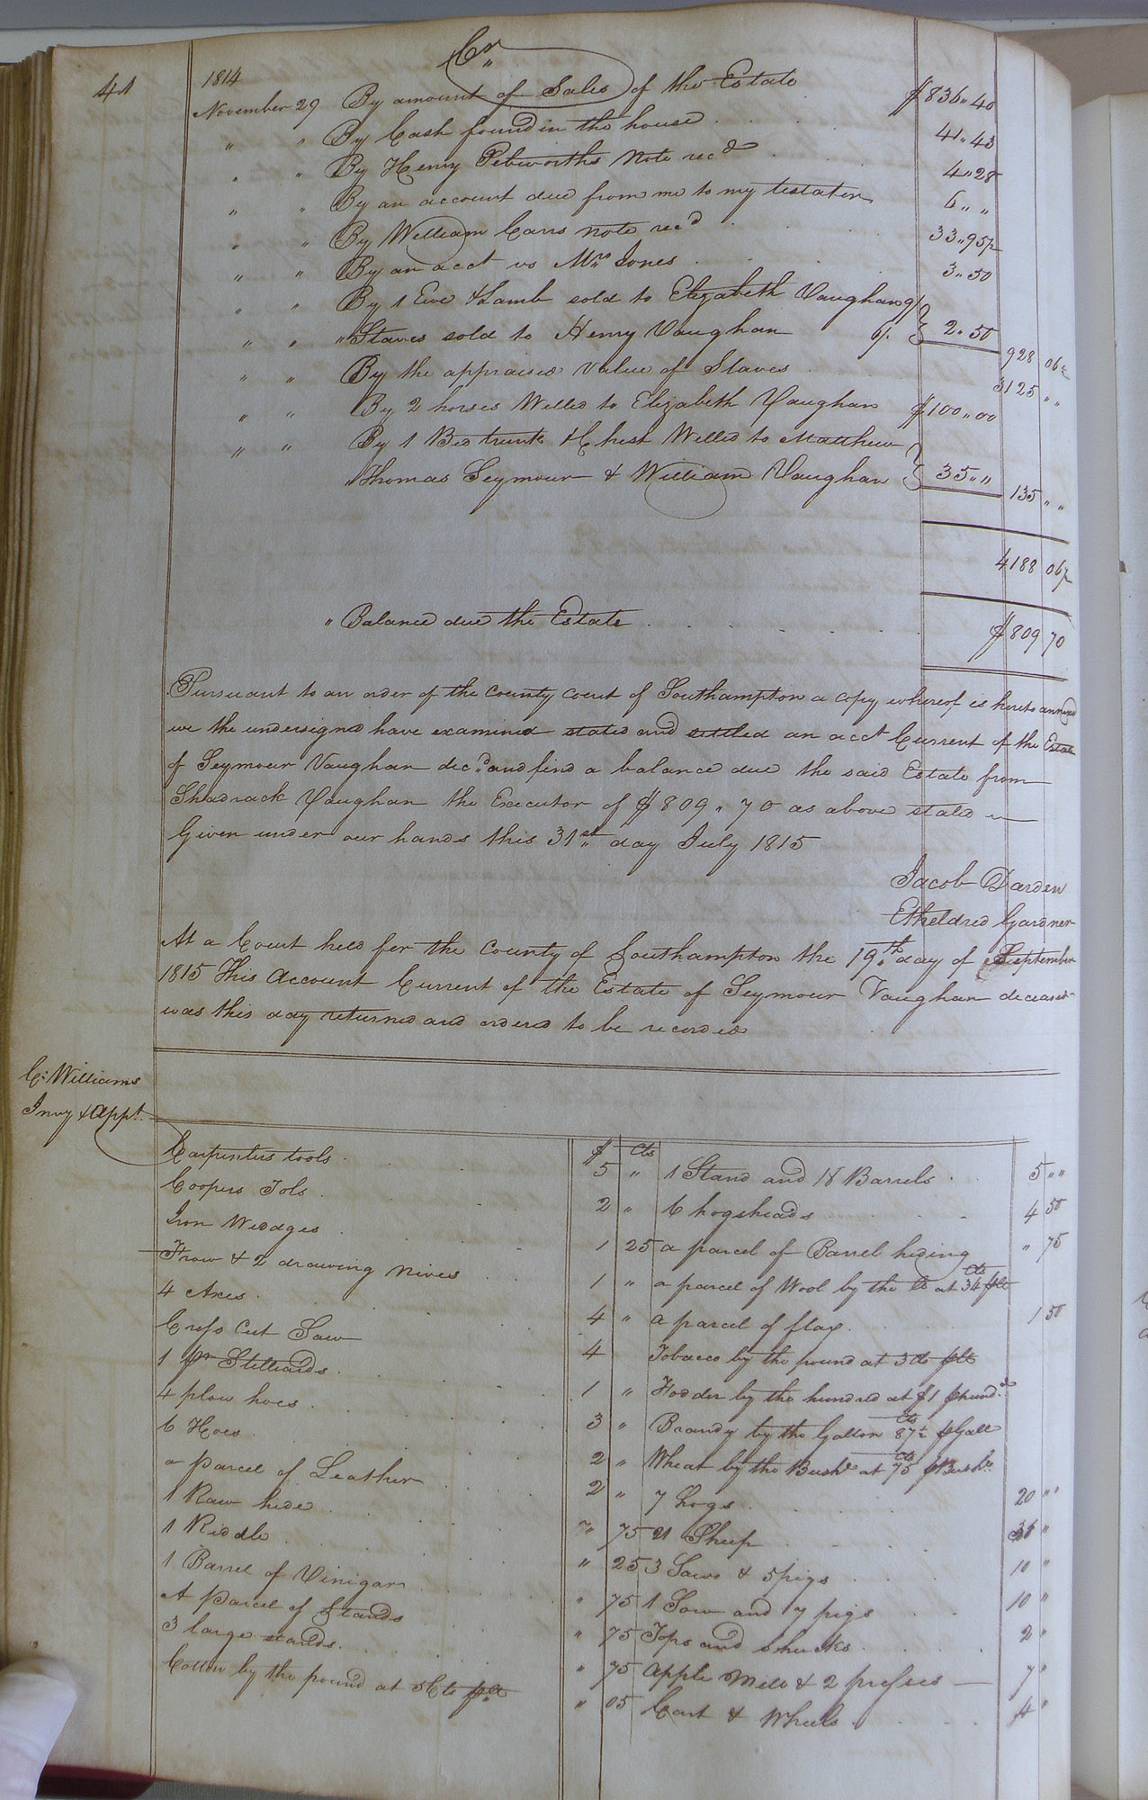 41
1814 Cr
November 29 By amount of Sales of the Estate $836.40
" " By Cash found in the house 41.43
" " By Henry Pebworths Note recd 4.28
" " By an account due from me to my testator 6 " "
" " By William Carrs note recd 33.95½
" " By an acct vs Mrs Jones 3.50
" " By 1 Ewe & Lamb sold to Elizabeth Vaughan 9/
" " " Staves sold to Henry Vaughan 6/. 2.50 928 06½
" " By the appraised Value of Slaves 3125 " "
" " By 2 horses Willed to Elizabeth Vaughan $100.00
" " By 1 Bed trunk & Chest Willed to Matthew
Thomas Seymour & William Vaughan 35 " " 135 " "
4188 06½
" Balance due the Estate $809 70
Pursuant to an order of the County Court of Southampton a copy whereof is hereto annexed
we the undersigned have examined stated and settled an acct Current of the Estate
of Seymour Vaughan decd and find a balance due the said Estate from
Shadrack Vaughan the Executor of $809.70 as above stated
Given under our hands this 31st day July 1815
Jacob Darden
Etheldred Gardner
At a Court held for the County of Southampton the 19th day of September
1815 This Account Current of the Estate of Seymour Vaughan deceased
was this day returned and ordered to be recorded
C: Williams
Invy & Appt.
$ Cts
Carpenters tools 5 " 1 Stand and 18 Barrels 5 " "
Coopers Tols 2 " 6 hogsheads 4 50
Iron Wedges 1 25 a parcel of Barrel heding " 75
Frow & 2 drawing nives 1 " a parcel of Wool by the lb at 34 Cts p lb
4 Axes 4 " a parcel of flax 1 50
Cross Cut Saw 4 Tobacco by the pound at 3 Cts p lb
1 pr Stilliards 1 " Fodder by the hundred at $1 p hund.d
4 plow hoes 3 " Brandy by the Gallon 87½ Cts p Gall
6 Hoes 2 " Wheat by the Bush.l at 75 Cts p Bush.l
a parcel of Leather 2 " 7 hogs 20 " "
1 Raw hide " 75 21 Sheep 36 "
1 Riddle " 25 3 Sows & 5 pigs 10 "
1 Barrel of Vinigar " 75 1 Sow and 7 pigs 10 "
A parcel of Stands " 75 Tops and Shucks 2 "
3 large stands " 75 Apple Mill & 2 presses 7 "
Cotton by the pound at 5 Cts p lb " 05 Cart & Wheels 4 "